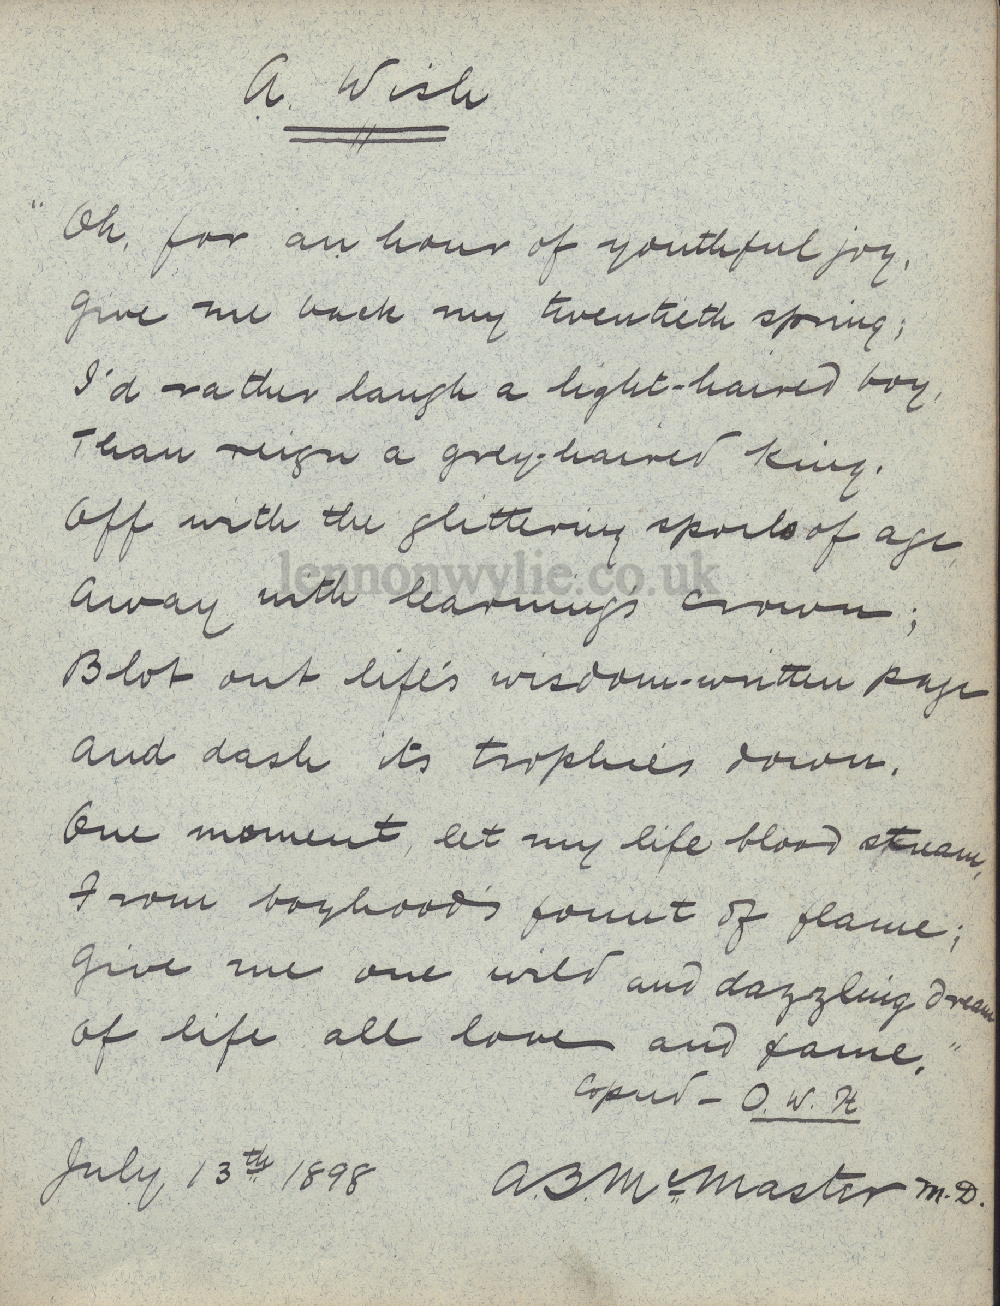 A. Wish
"Oh, for an hour of youthful joy,
Give me back my twentieth spring;
I'd rather laugh a light-haired boy,
Than reign a grey-haired king.
Off with the glittering spoils of age
lennonwylie.co.uk
Away with learning's crown;
Blot out life's wisdom-written page
And dash its trophies down.
One moment, let my life blood stream,
From boyhood's fount of flame;
Give me one wild and dazzling dream
Of life all love and fame."
Copied - O. W. H
July 13th 1898 A.B. McMaster M.D.